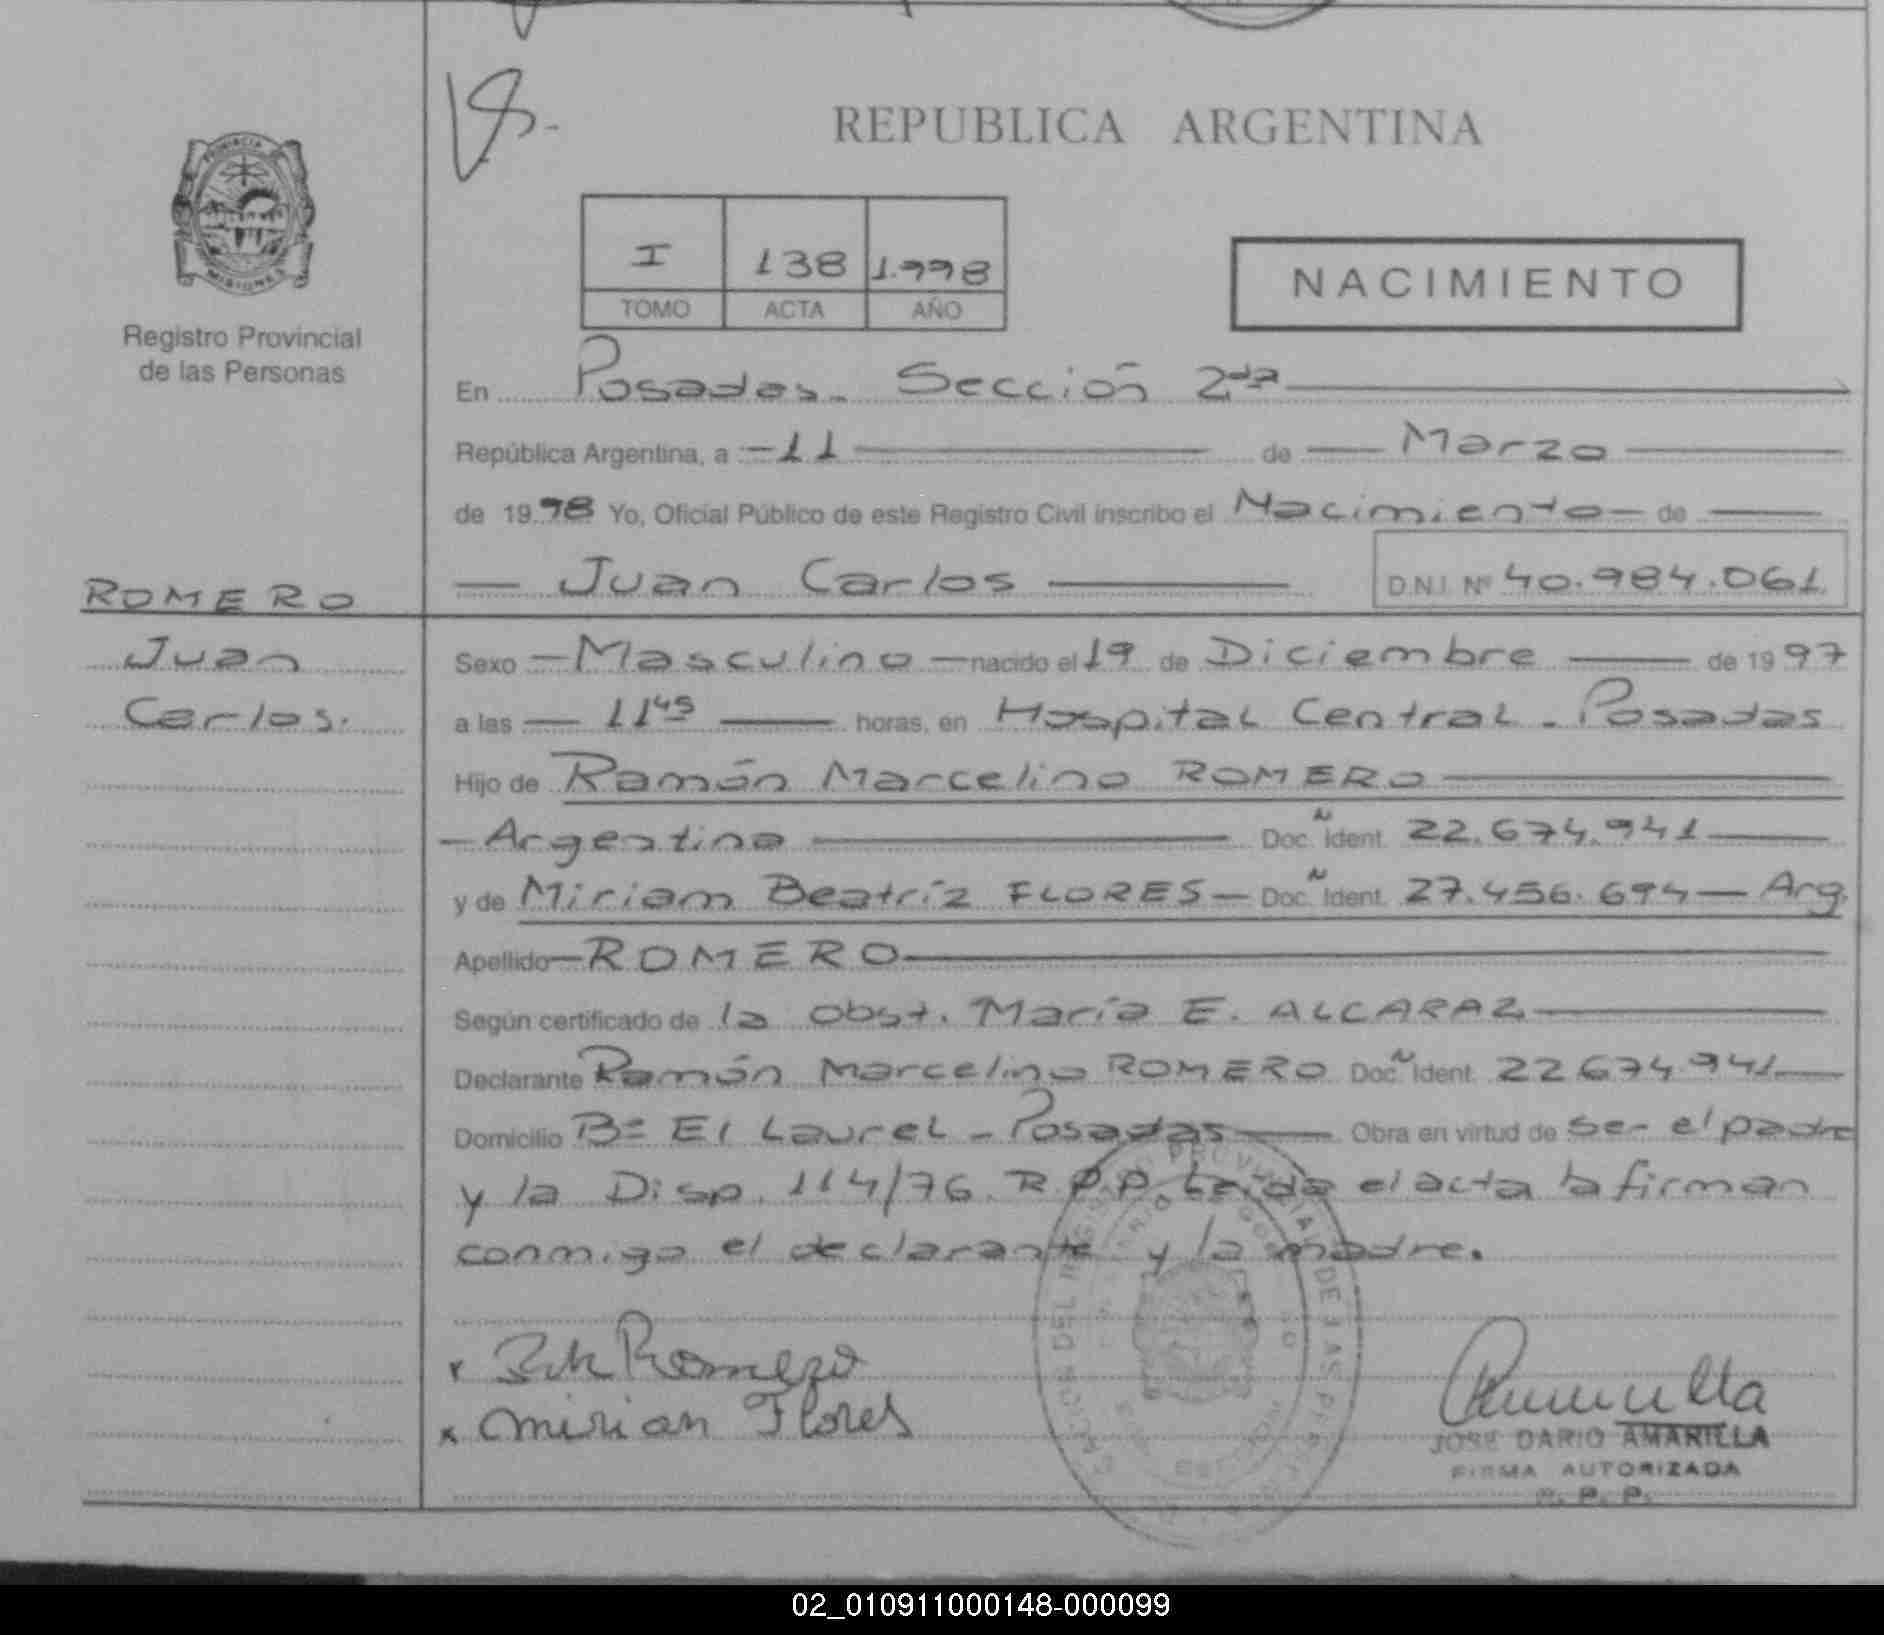 REPUBLICA ARGENTINA
PROVINCIA DE
MISIONES
Registro Provincial
de las Personas
I 138 1.998
TOMO ACTA AÑO
NACIMIENTO
En Posadas. Sección 2da
República Argentina, a -11 de Marzo
de 1998 Yo, Oficial Público de este Registro Civil inscribo el Nacimiento de
Juan Carlos D.N.I. Nº 40.984.061
ROMERO
Juan
Carlos.
Sexo Masculino nacido el 19 de Diciembre de 1997
a las 11 45 horas, en Hospital Central - Posadas
Hijo de Ramón Marcelino ROMERO
Argentina Doc. Ident. 22.674.941
y de Miriam Beatríz FLORES Doc. Ident. 27.456.694 Arg.
Apellido ROMERO
Según certificado de la obst. María E. ALCARAZ
Declarante Ramón Marcelino ROMERO Doc. Ident. 22.674.941
Domicilio Bº El Laurel - Posadas Obra en virtud de ser el padre
y la Disp. 114/76 R.P.P. Leída el acta la firman
conmigo el declarante y la madre.
Romero
mirian Flores
JOSE DARIO AMARILLA
FIRMA AUTORIZADA
R. P. P.
02_010911000148-000099